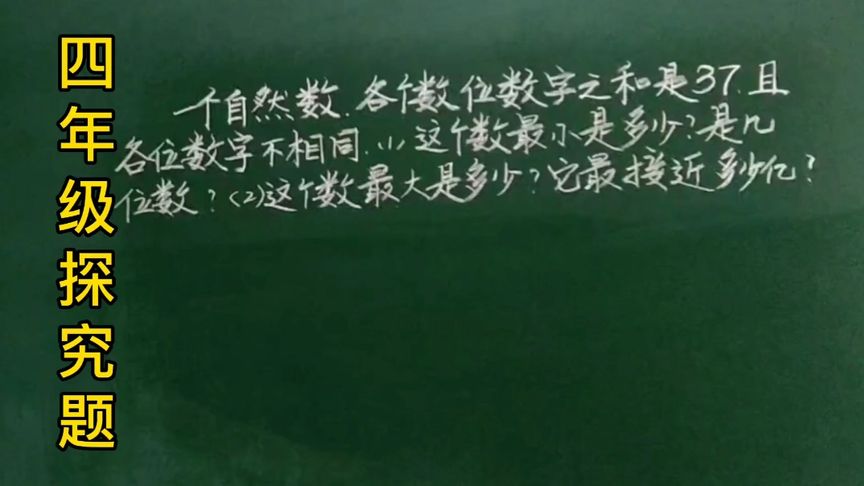 四年级探究题
一个自然数.各个数位数字之和是37.且
各位数字不相同.(1)这个数最小是多少?是几
位数?(2)这个数最大是多少?它最接近多少亿?